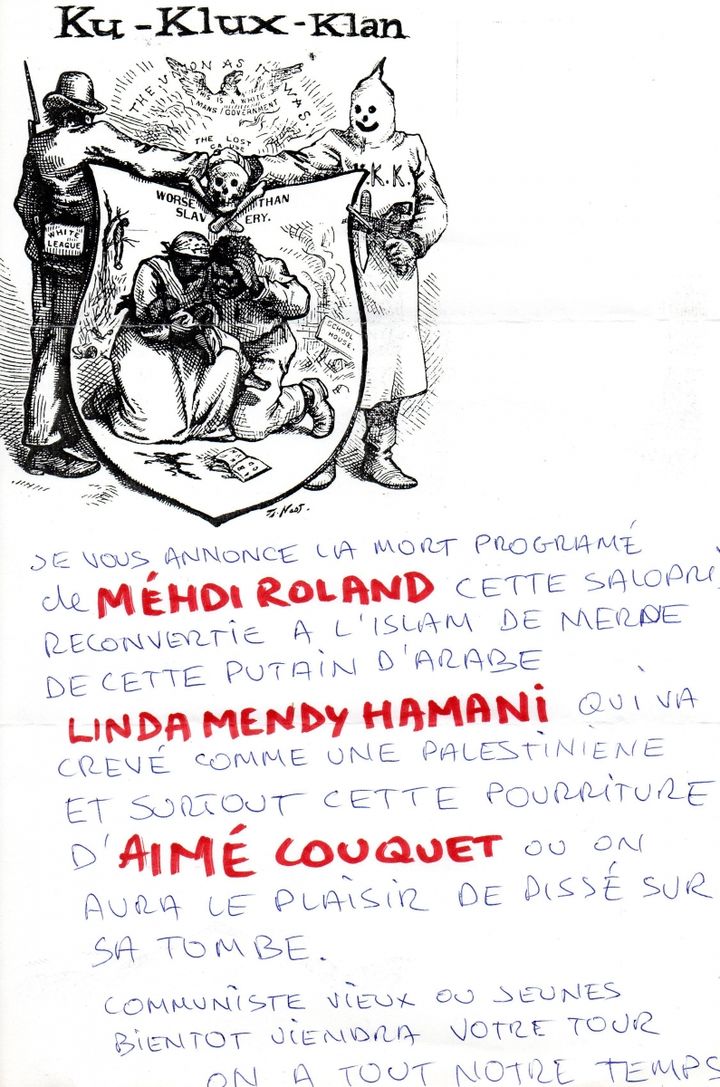 Ku-Klux-Klan
THE UNION AS IT WAS.
THIS IS A WHITE
MANS GOVERNMENT
THE LOST
CAUSE
K.K.
WORSE THAN
SLAVERY.
WHITE
LEAGUE
SCHOOL
HOUSE.
Th. Nast.
JE VOUS ANNONCE LA MORT PROGRAMÉ
de MÉHDI ROLAND CETTE SALOPRI
RECONVERTIE A L'ISLAM DE MERDE
DE CETTE PUTAIN D'ARABE
LINDA MENDY HAMANI QUI VA
CREVÉ COMME UNE PALESTINIENE
ET SURTOUT CETTE POURRITURE
D'AIMÉ COUQUET OU ON
AURA LE PLAISIR DE PISSÉ SUR
SA TOMBE.
COMMUNISTE VIEUX OU JEUNES
BIENTOT VIENDRA VOTRE TOUR
ON A TOUT NOTRE TEMPS